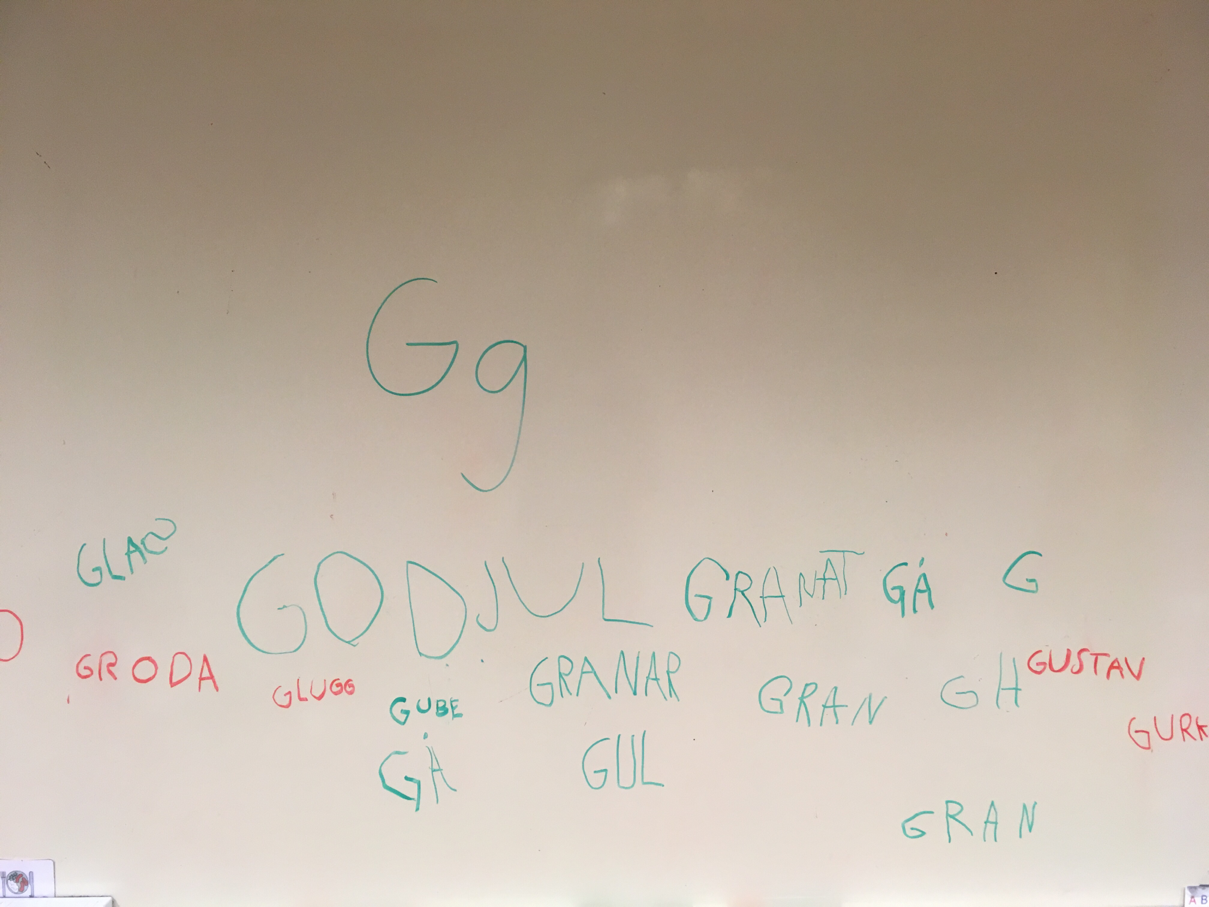 Gg
GLAD
GODJUL GRANAT GÅ G
GRODA GLUGG GUBE GRANAR GRAN GH GUSTAV
GURK
GÅ GUL
GRAN
A B